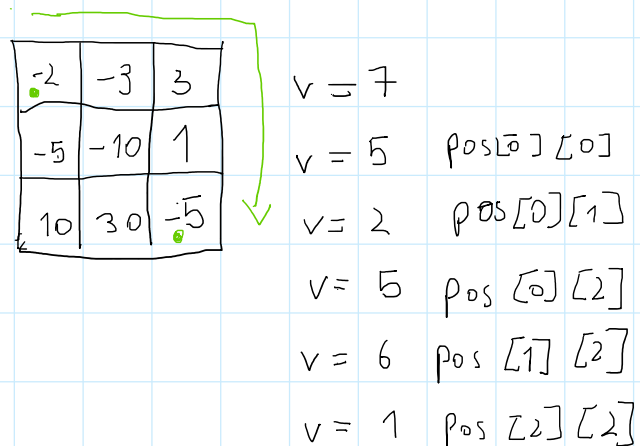 -2 -3 3
-5 -10 1
10 30 -5
v = 7
v = 5 pos[0][0]
v = 2 pos[0][1]
v = 5 pos [0][2]
v = 6 pos [1] [2]
v = 1 pos [2][2]